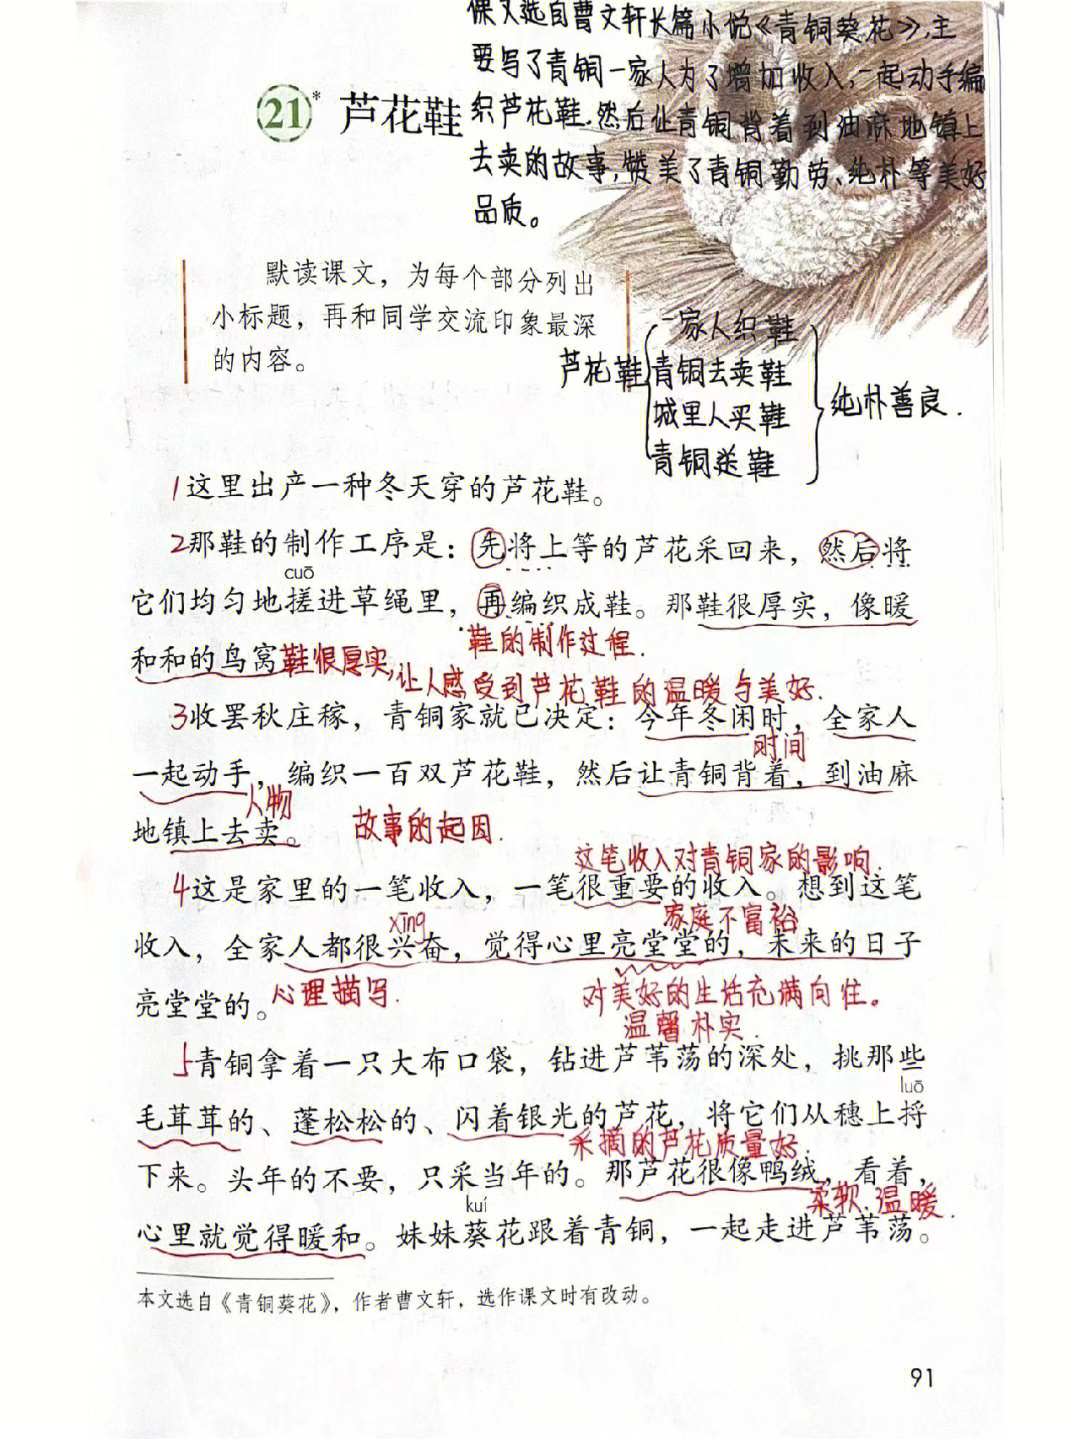 课文选自曹文轩长篇小说《青铜葵花》,主
要写了青铜一家人为了增加收入,一起动手编
织芦花鞋.然后让青铜背着到油麻地镇上
去卖的故事,赞美了青铜勤劳、纯朴等美好
品质。
21* 芦花鞋
默读课文，为每个部分列出
小标题，再和同学交流印象最深
的内容。
芦花鞋
一家人织鞋
青铜去卖鞋
城里人买鞋
青铜送鞋
纯朴善良.
1这里出产一种冬天穿的芦花鞋。
2那鞋的制作工序是：先将上等的芦花采回来，然后将
cuō
它们均匀地搓进草绳里，再编织成鞋。那鞋很厚实，像暖
鞋的制作过程.
和和的鸟窝
鞋很厚实,让人感受到芦花鞋的温暖与美好.
3收罢秋庄稼，青铜家就已决定：今年冬闲时，全家人
时间
一起动手，编织一百双芦花鞋，然后让青铜背着，到油麻
人物
地镇上去卖。
故事的起因.
这笔收入对青铜家的影响.
4这是家里的一笔收入，一笔很重要的收入。想到这笔
xīng
家庭不富裕
收入，全家人都很兴奋，觉得心里亮堂堂的，未来的日子
亮堂堂的。
心理描写.
对美好的生活充满向往。
温馨 朴实.
5青铜拿着一只大布口袋，钻进芦苇荡的深处，挑那些
luō
毛茸茸的、蓬松松的、闪着银光的芦花，将它们从穗上捋
采摘的芦花质量好.
下来。头年的不要，只采当年的。那芦花很像鸭绒，看着，
kuí
柔软.温暖.
心里就觉得暖和。妹妹葵花跟着青铜，一起走进芦苇荡。
本文选自《青铜葵花》，作者曹文轩，选作课文时有改动。
91